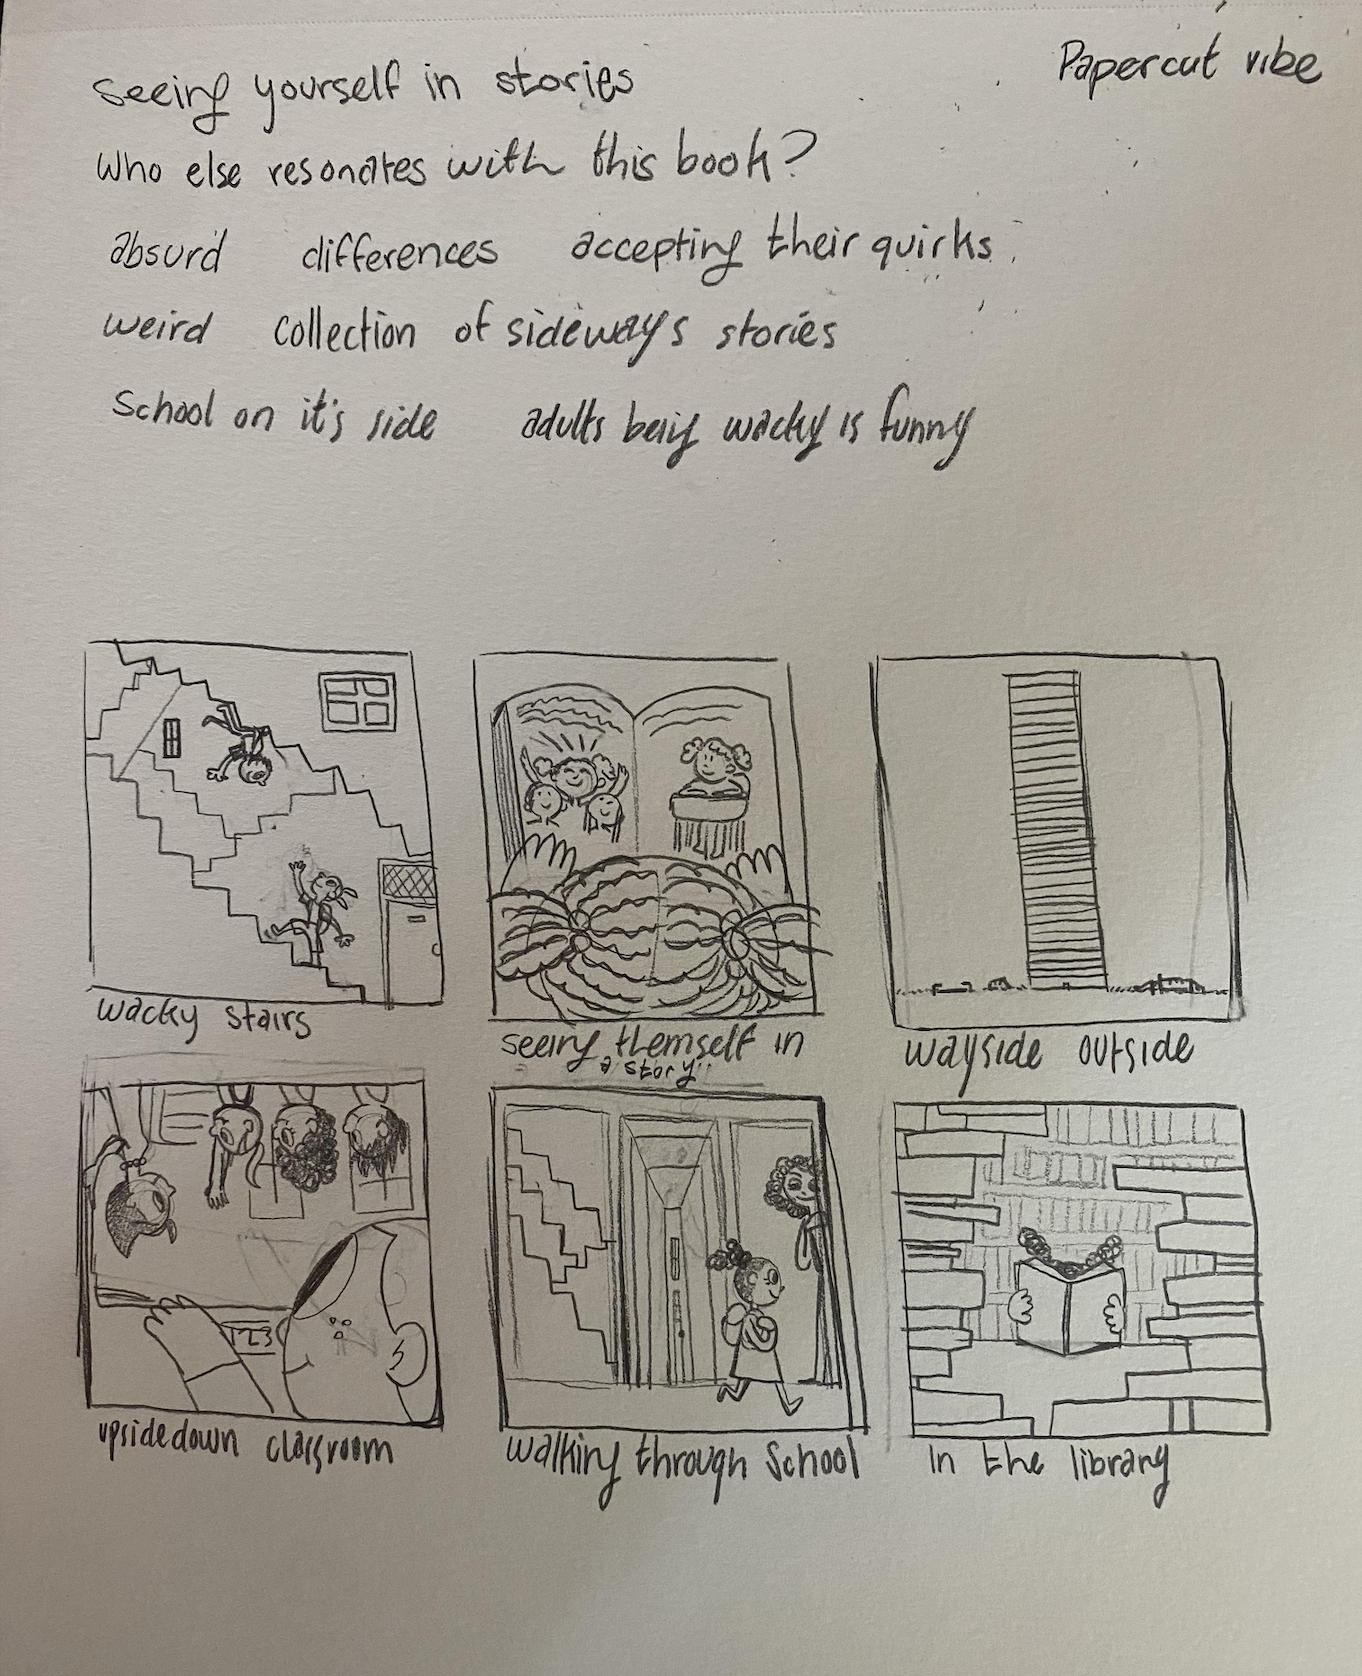 Papercut vibe
Seeing yourself in stories
Who else resonates with this book?
absurd differences accepting their quirks
weird collection of sideways stories
School on it's side adults being wacky is funny
wacky stairs
seeing themself in
a story
wayside outside
123
upsidedown classroom
walking through School
In the library